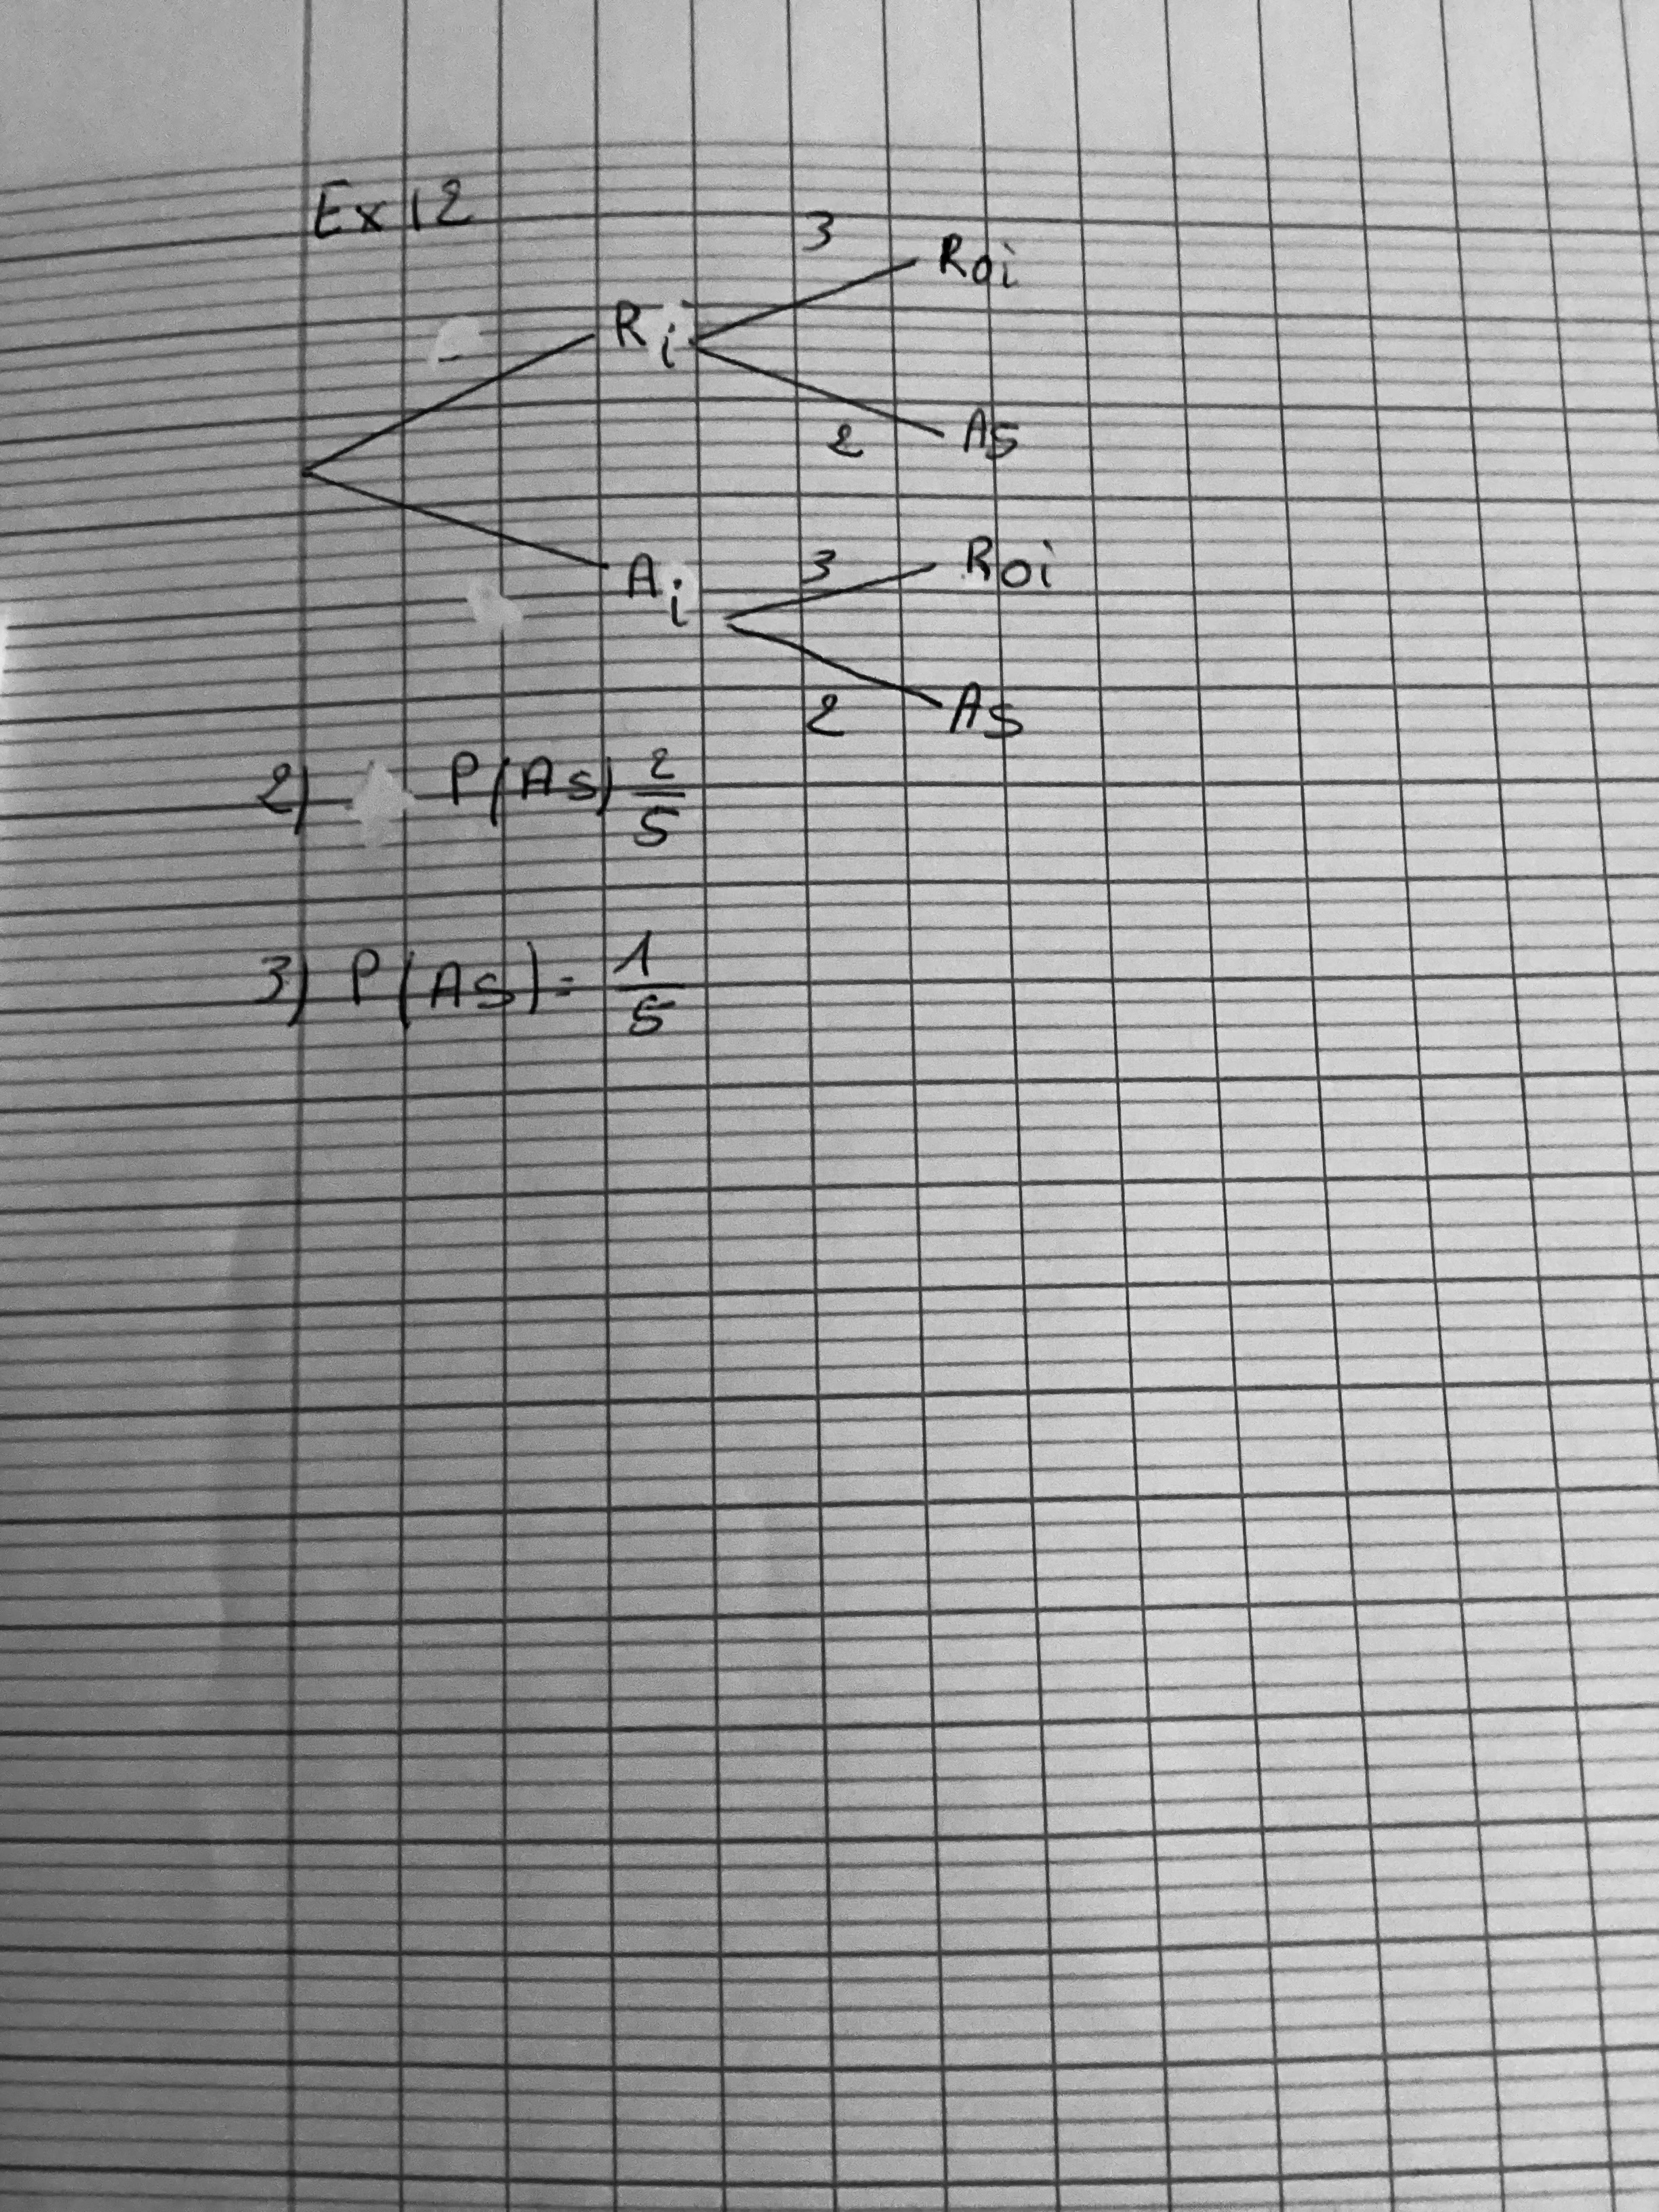 Ex 12
3
Roi
Ri
2
As
Ai
3
Roi
2
As
2) P(As) 2/5
3) P(As) = 1/5